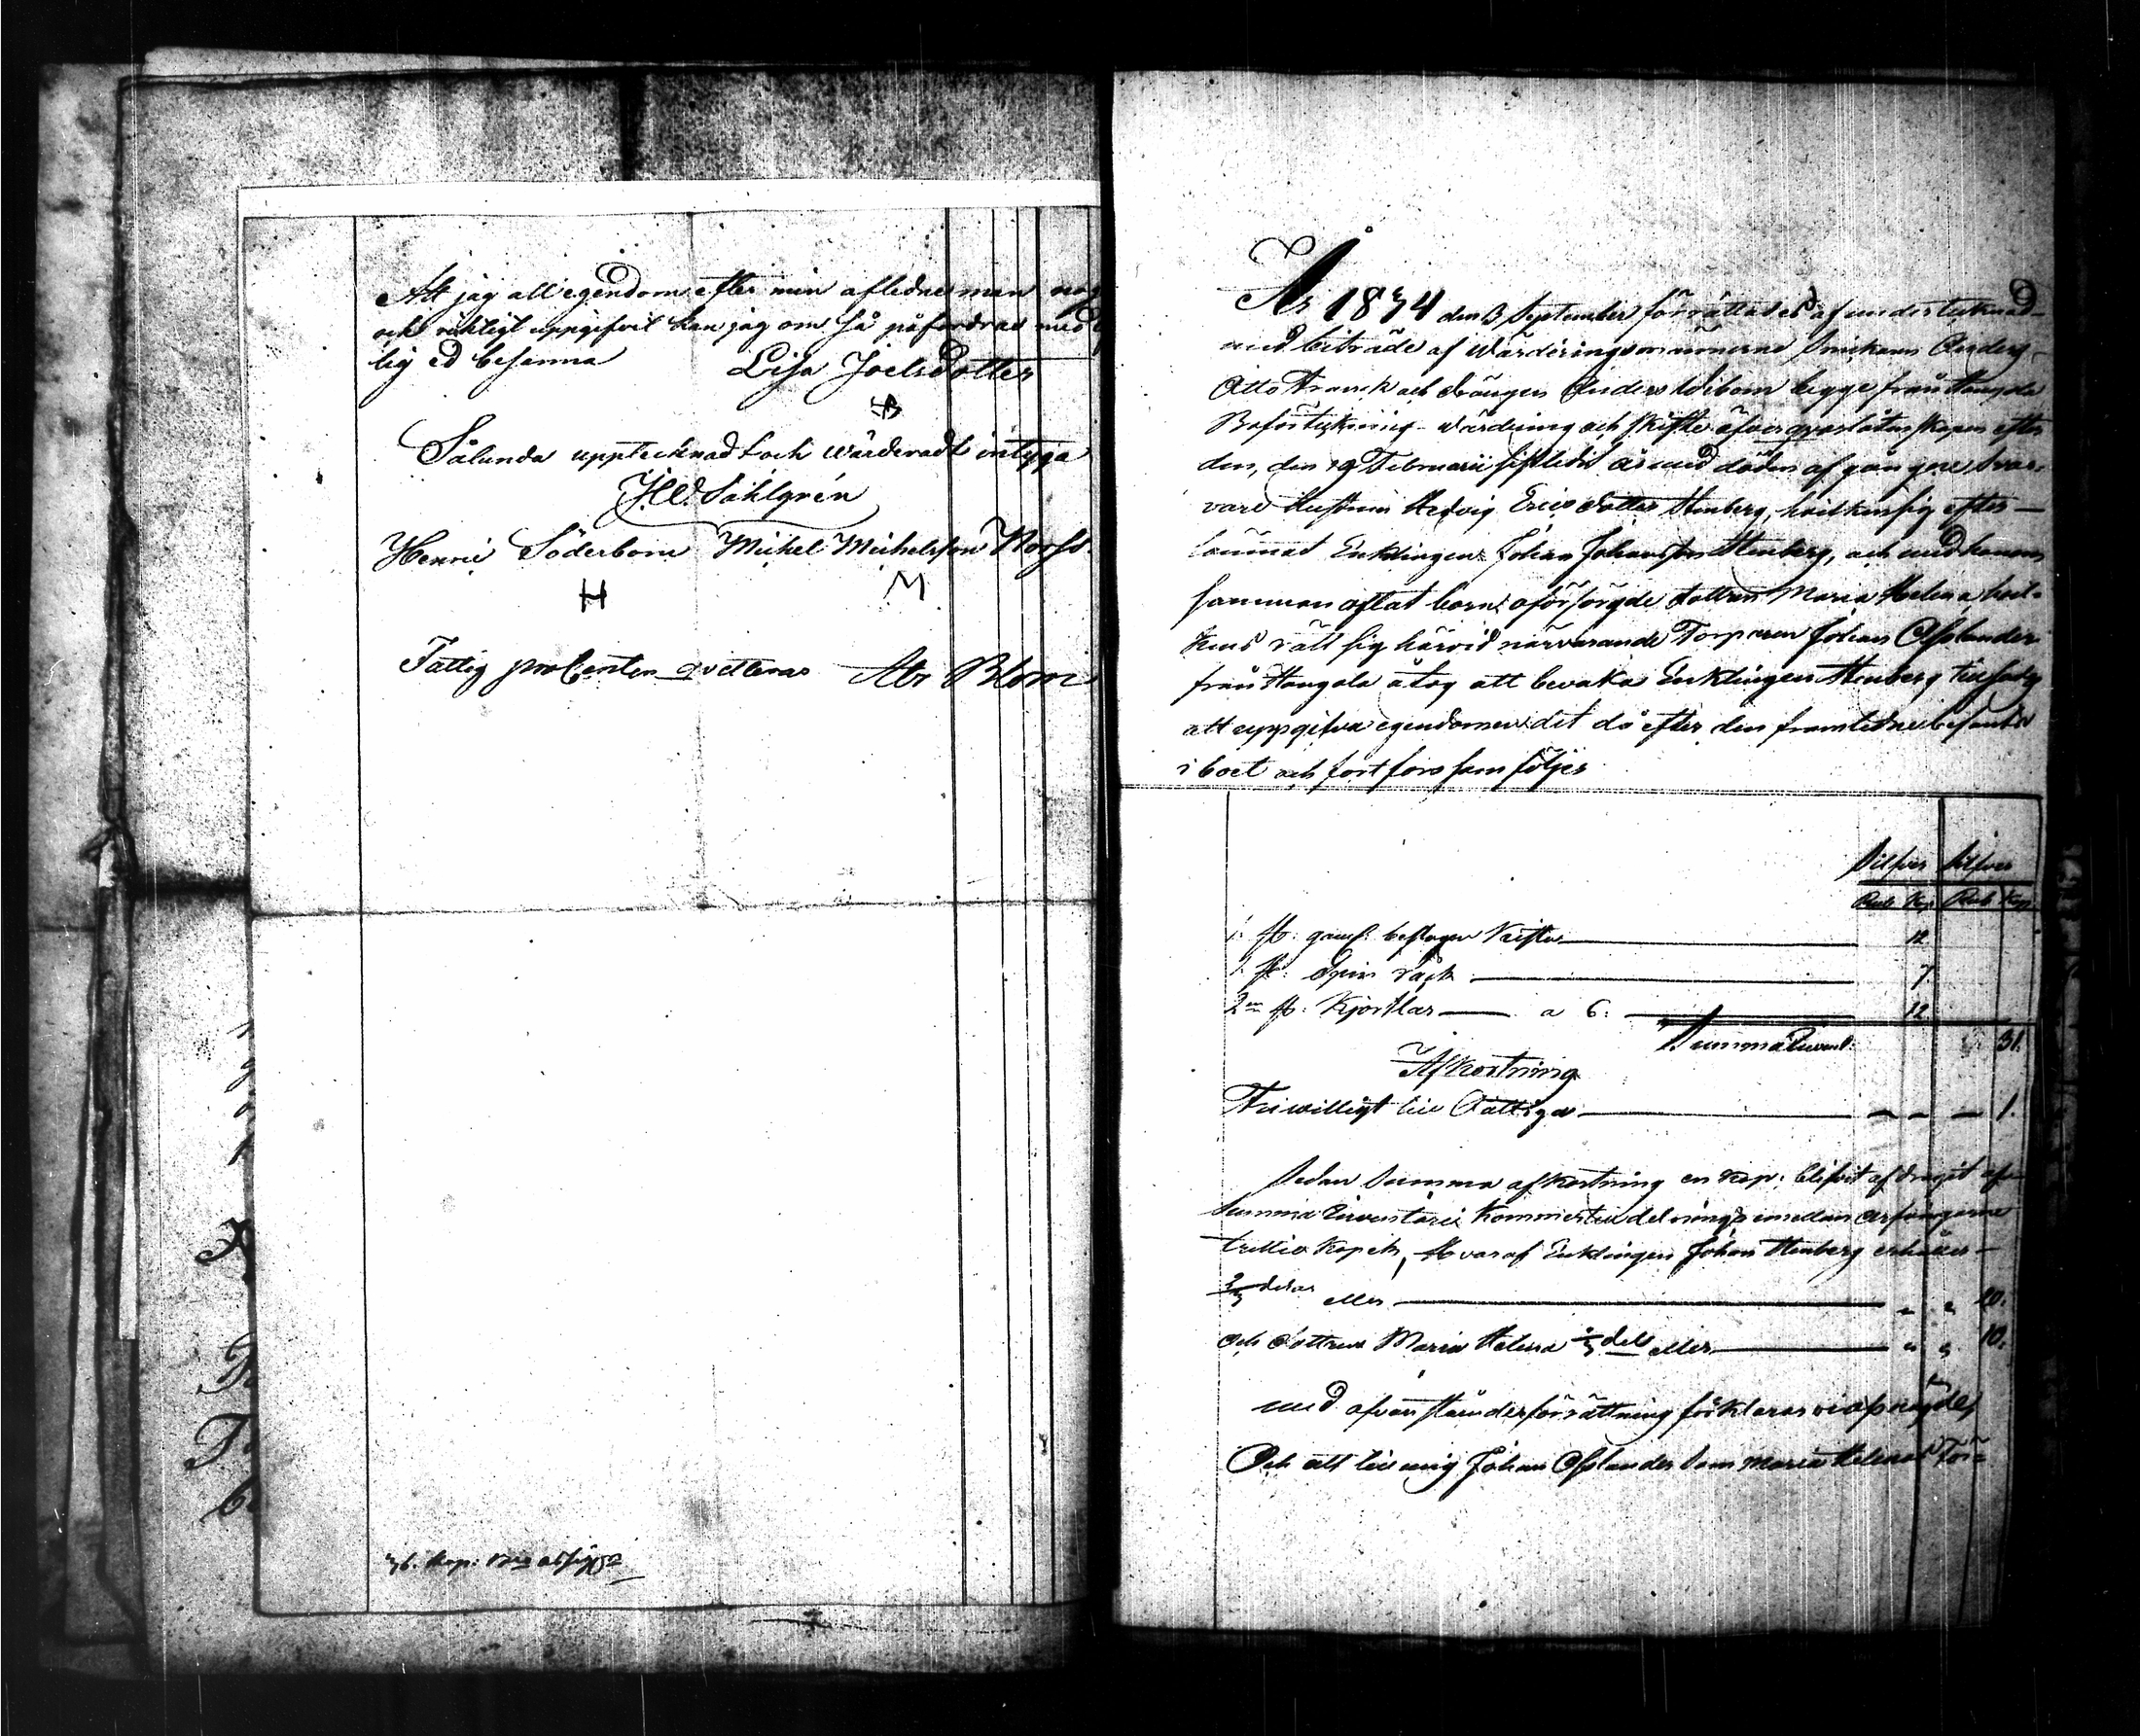 Att jag all egendom efter min aflednes man nog
och riktigt uppgifvit kan jag om så påfordras med
lig ed besanna Lisa Joelsdotter
Sålunda upptecknadt och wärderadt intyga
Henric Söderbom Michel Michelsson
H M
Fattig procenten qvitteras Abr Blom
36. kop:
År 1834 den 3 September förrättades af undertecknad
med biträde af Wärderingsmännerne Anders
Otto Franck och Drängen Anders Wibom begge från
Boförteckning wärdering och skifte öfver qvarlåtenskapen efter
den, den 19 Februarii sistledit år med döden afgångne
Hustrun Hedvig Ericsdotter Stenberg, hvilken sig efter
lämnat Enklingen Johan Johansson Stenberg, och med honom
samman aflat barn: oförsörgde dottren Maria Helena, hvil-
kens rätt sig härvid närvarande Torparen Johan Asplander
från Hangala åtog att bevaka Enklingen Stenberg tillsades
att uppgifva egendomen det då efter den framledne befants
i boet och fortfors som följer
Silfver Silfver
Rub. Kop. Rub. Kop.
1. st: gaml: beslagen Kista 12
1. st: Spin råck 7.
2ne st: Kjortlar a 6: 12
Summa Invent: 31.
Afkortning
Friwilligt till Fattiga 1.
Sedan Summa afkortning en kop: blifvit afdragit af
Summa Inventarii kommer till delning emellan arfvingarne
trettio Kopek, hvaraf Enklingen Johan Stenberg erhåller
2/3 delar eller 20.
och dottren Maria Helena 1/3 del eller 10.
med ofvanstående förrättning förklaras vi oss nögde,
Och att till mig Johan Asplander som Maria Helenas För=